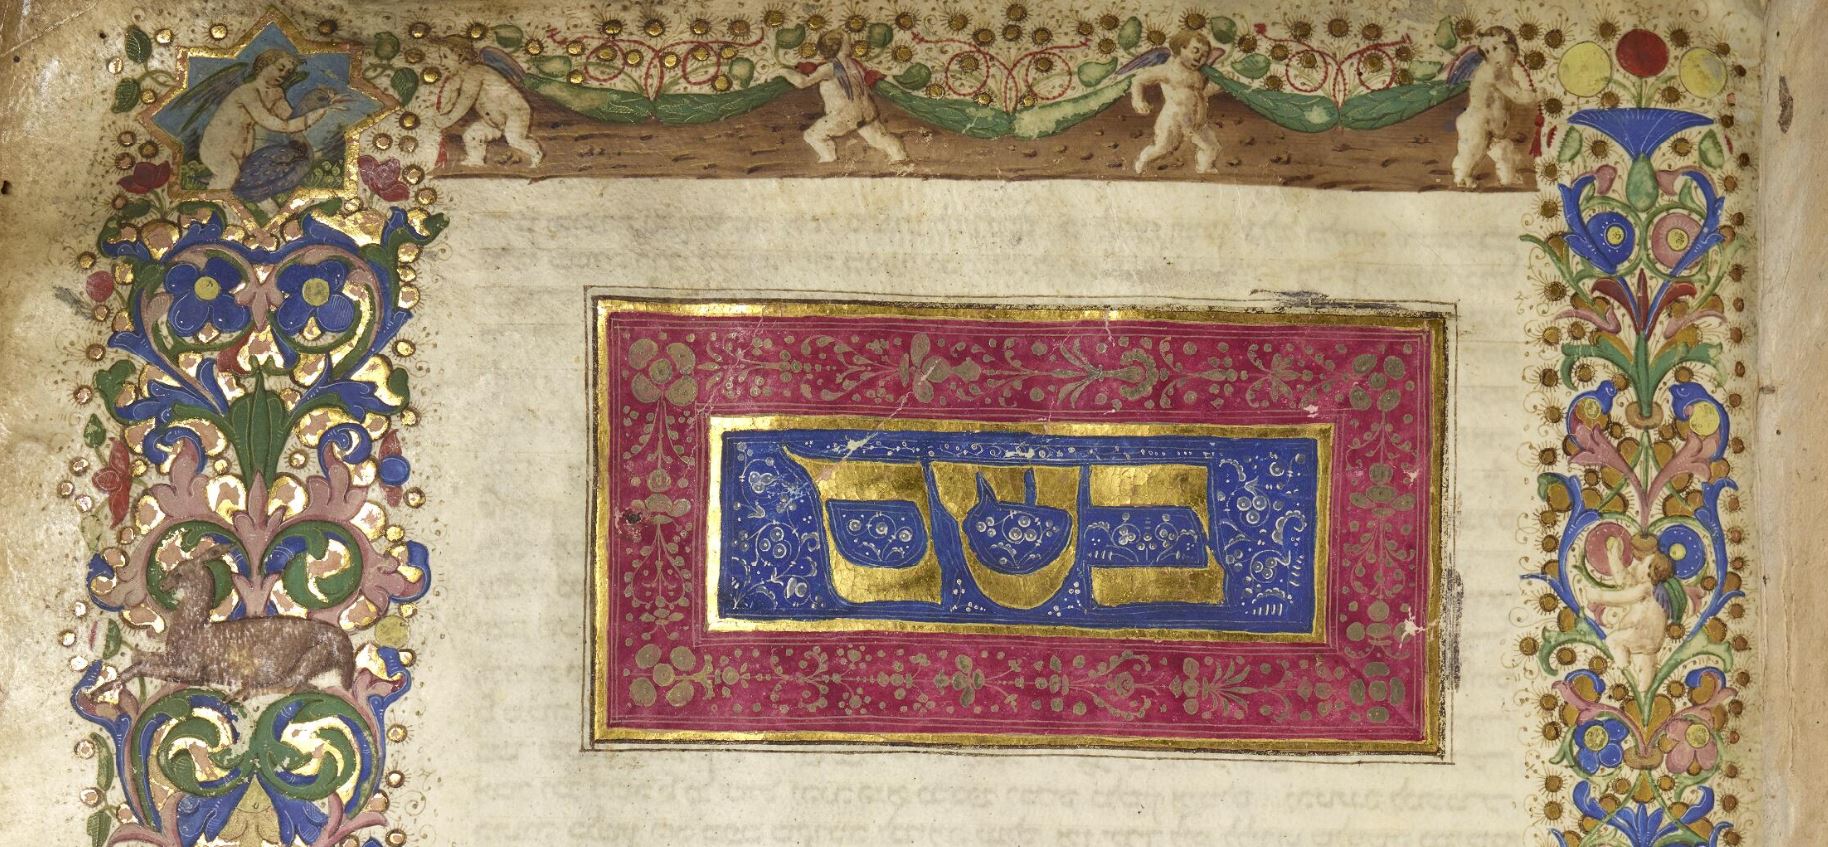 בשם